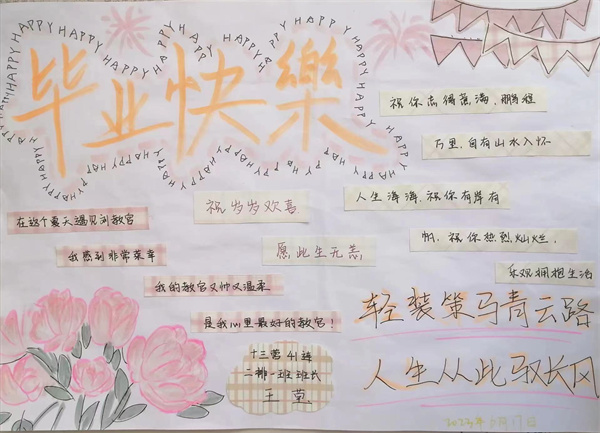 毕业快樂
HAPPY HAPPY HAPPY HAPPY HAPPY HAPPY HAPPY HAPPY
祝你志得意满,鹏程
万里,自有山水入怀
人生海海,祝你有岸有
帆,祝你热烈灿烂,
乐观拥抱生活
祝岁岁欢喜
愿此生无恙
在这个夏天遇见刘教官
我感到非常荣幸
我的教官又帅又温柔
是我心里最好的教官!
十三营41连
二排一班班长
王莫
轻装策马青云路
人生从此驭长风
2023年6月17日